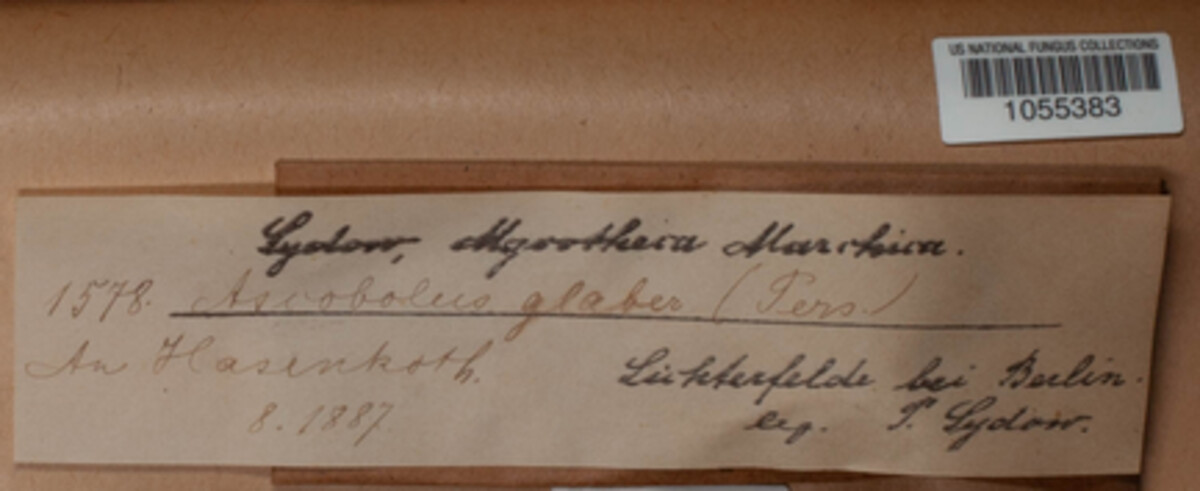 US NATIONAL FUNGUS COLLECTIONS
1055383
Sydow, Mycotheca Marchica.
1578. Ascobolus glaber (Pers.)
An Hasenkoth.
Lichterfelde bei Berlin.
8. 1887
leg. P. Sydow.